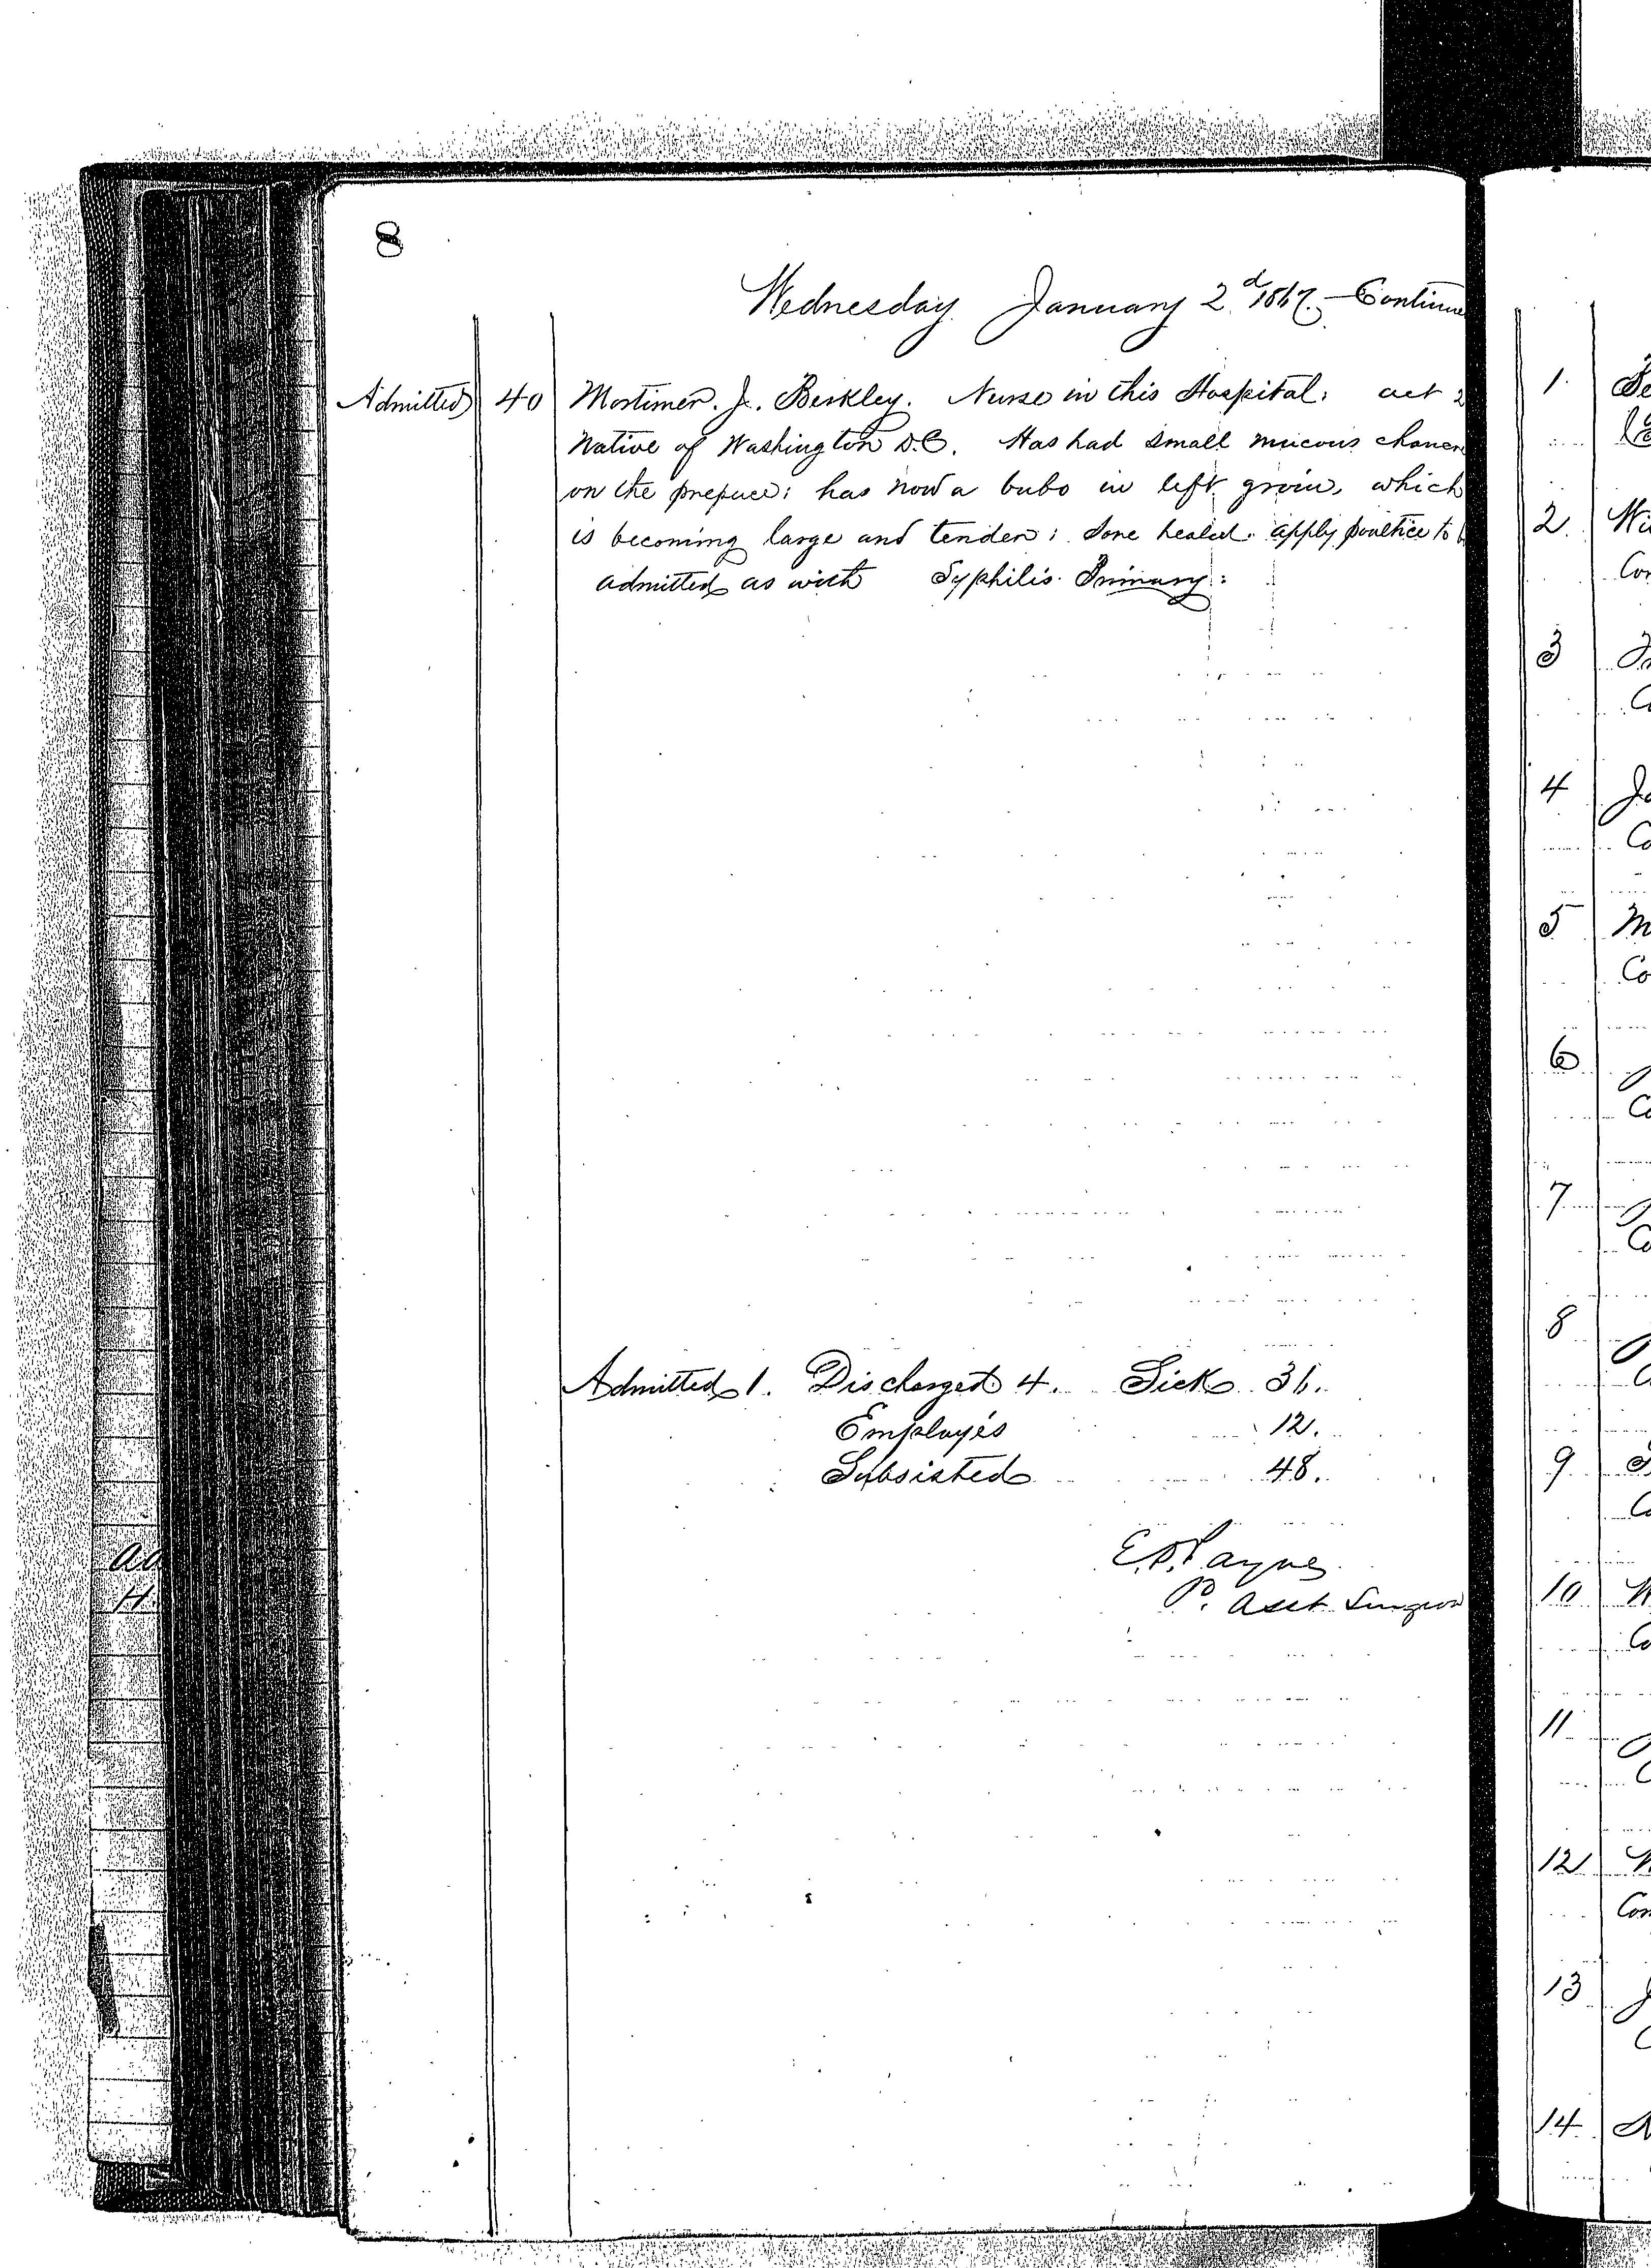 8
Wednesday January 2d 1867. - Continue
Admitted 40 Mortimer. J. Berkley. Nurse in this Hospital: aet 2
Native of Washington D.C. Has had small mucous chancr
on the prepuce; has now a bubo in left groin, which
is becoming large and tender; Sore healed. apply poultice to b
admitted as with Syphilis Primary:
Admitted 1. Discharged 4. Sick 36.
Employés 12.
Subsisted 48.
E.D. Payne
P. Asst Surgeon
Ad
H
1
2. Wi
Co
3
4 Jo
Co
5 M
Co
6
Co
7
Co
8
9
10
Co
11
12
Con
13
14